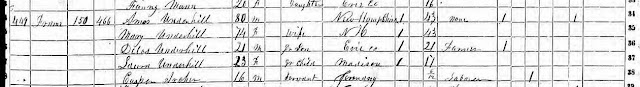 Fanny Mann 20 f Daughter Erie co 16
449 Frame 150 466 Amos Underhill 80 m New Hampshire 1 43 none 1 1 34
Mary Underhill 74 f Wife N H 1 43 35
Delos Underhill 21 m Gr Son Erie co 1 21 Farmer 1 36
Underhill 23 f Gr Child Madison 1 17 37
Casper 16 m Servant Germany Laborer 1 38